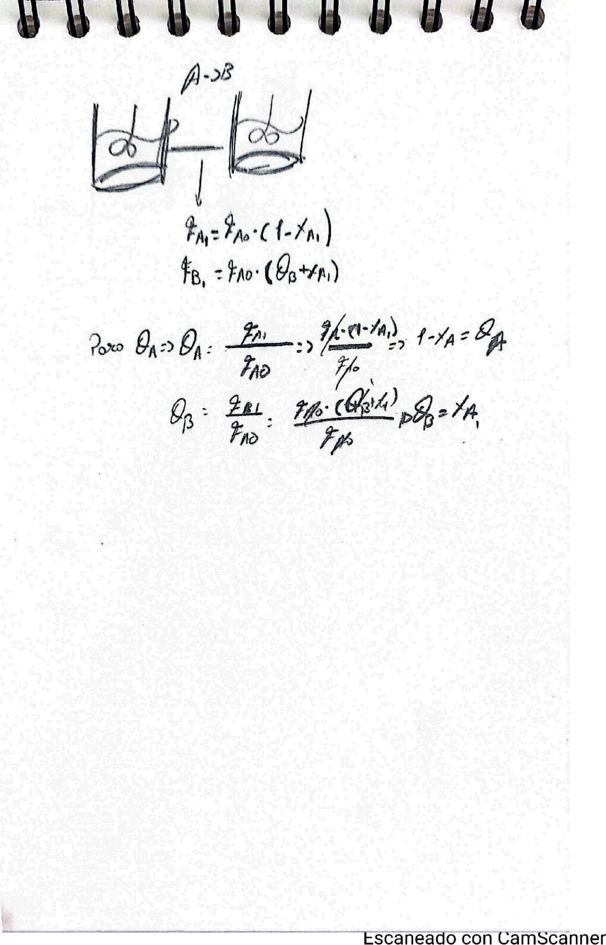 A->B
F_A1 = F_A0 · (1-X_A1)
F_B1 = F_A0 · (θ_B + X_A1)
Para θ_A => θ_A = F_A1 / F_A0 => F_A0 · (1-X_A1) / F_A0 => 1-X_A = θ_A
θ_B = F_B1 / F_A0 = F_A0 · (θ_B + X_A1) / F_A0 => θ_B = X_A1
Escaneado con CamScanner